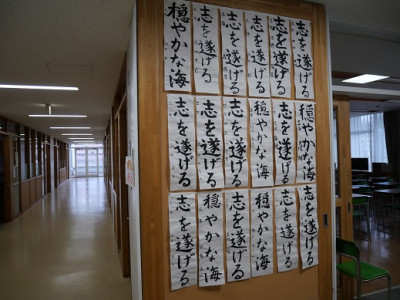 志を遂げる
志を遂げる
志を遂げる
志を遂げる
志を遂げる
穏やかな海
穏やかな海
志を遂げる
穏やかな海
志を遂げる
志を遂げる
志を遂げる
志を遂げる
志を遂げる
穏やかな海
志を遂げる
穏やかな海
志を遂げる